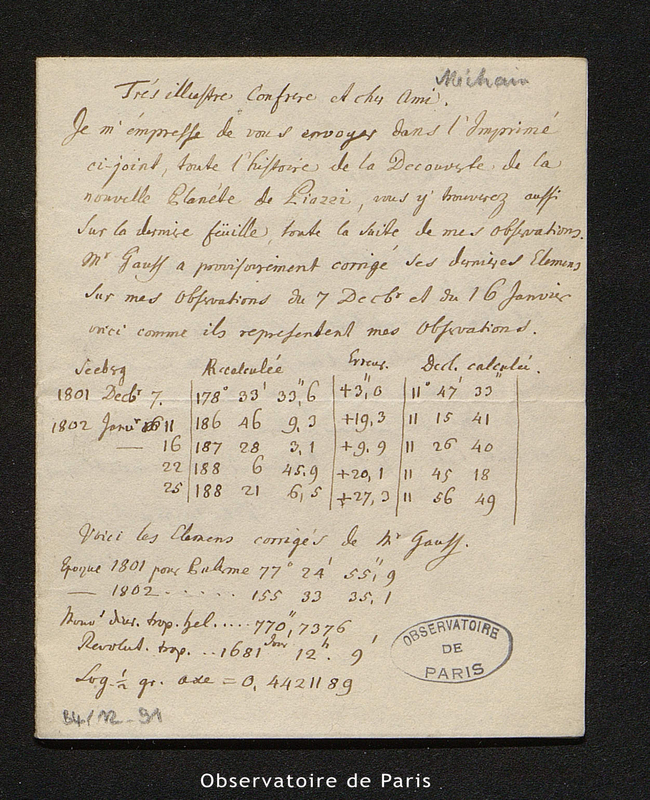 Méchain
Trés illustre Confrere et cher Ami.
Je m'émpresse de vous envoyer dans l'Imprimé
ci-joint, toute l'histoire de la Decouverte de la
nouvelle Planéte de Piazzi, vous y trouverez aussi
sur la derniere feüille, toute la suite de mes observations.
Mr Gauss a provisoirement corrigé ses dernieres Elemens
sur mes Observations du 7 Decbr et du 16 Janvier
voici comme ils representent mes Observations.
Seeberg R calculée Erreur. Decl. calculée.
1801 Decbr 7. 178° 33' 33,"6 +3,"0 11° 47' 33"
1802 Janvr 11 186 46 9,3 +19,3 11 15 41
— 16 187 28 3,1 +9.9 11 26 40
22 188 6 45.9 +20,1 11 45 18
25 188 21 6,5 +27,3 11 56 49
Voici les Elemens corrigés de Mr Gauss.
Epoque 1801 pour Palerme 77° 24' 55,"9
— 1802 . . . . . . 155 33 35,1
Mouvt diur. trop. hel..... 770",7376
Revolut. trop. .. 1681 Jour 12h. 9'
Log. ½ gr. axe = 0,4421189
OBSERVATOIRE
DE
PARIS
B4/12-91
Observatoire de Paris